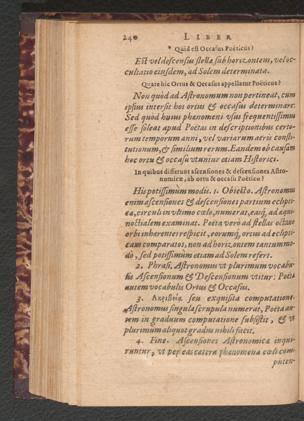 240 LIBER
* Quid est Occasus Poëticus?
Est vel descensus stellæ sub horizontem, vel oc-
cultatio eiusdem, ad Solem determinata.
Quare hic Ortus & Occasus appellantur Poëticus?
Non quòd ad Astronomum non pertineat, cum
ipsius intersit hos ortus & occasus determinare:
Sed quòd huius phænomeni vsus frequentissimus
esse soleat apud Poëtas in descriptionibus certo-
rum temporum anni, vel variarum aëris consti-
tutionum, & similium rerum. Eandem ob causam
hoc ortu & occasu vtuntur etiam Historici.
In quibus differunt ascensiones & descensiones Astro-
nomicæ, ab ortu & occasu Poëtico?
His potissimùm modis. 1. Obiecto. Astronomus
enim ascensiones & descensiones partium eclipti-
cæ, circuli in vltimo cœlo, numerat, easq́; ad æqui-
noctialem examinat. Poëta verò ad stellas octauo
orbi inherentes respicit, eorumq́; ortus ad eclipti-
cam comparatos, non ad horizontem tantummo-
do, sed potissimùm etiam ad Solem refert.
2. Phrasi, Astronomus vt plurimum vocabu-
lis Ascensionum & Descensionum vtitur: Poëta
autem vocabulis Ortus & Occasus.
3. seu exquisita computatione.
Astronomus singula scrupula numerat, Poëta au-
tem in graduum computatione subsistit, & vt
plurimùm aliquot gradus nihili facit.
4. Fine. Ascensiones Astronomicæ inqui-
runtur, vt per eas cætera phænomena cœli com-
puten-